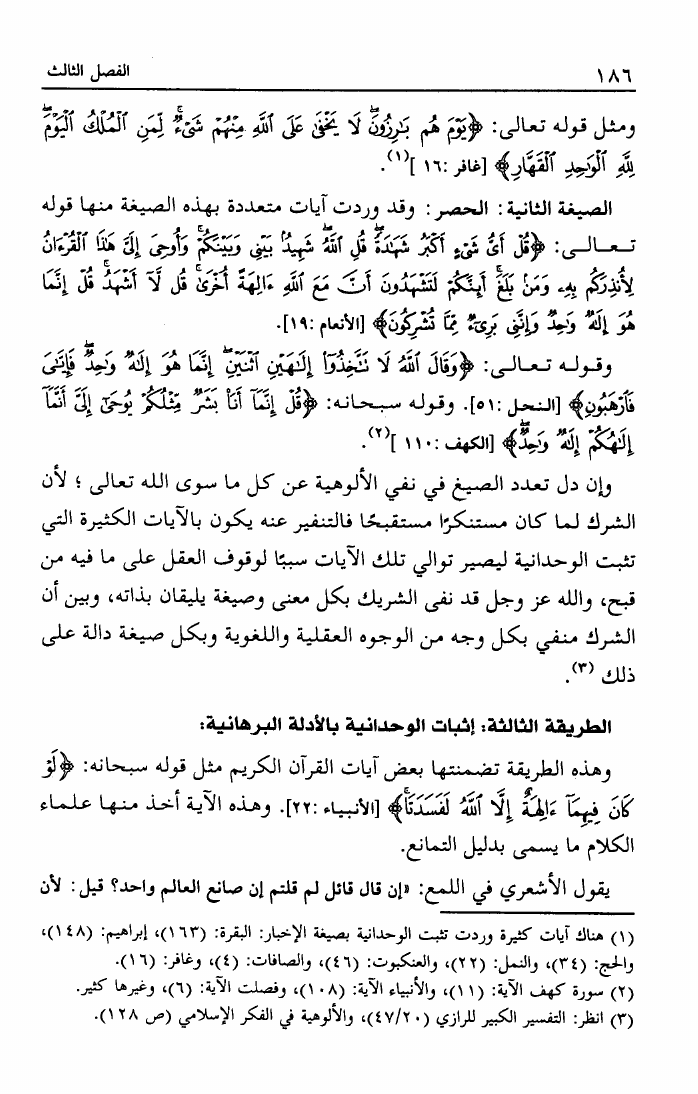 ١٨٦ الفصل الثالث
ومثل قوله تعالى: ﴿يَوْمَ هُم بَـٰرِزُونَۖ لَا يَخْفَىٰ عَلَى ٱللَّهِ مِنْهُمْ شَىْءٌۚ لِّمَنِ ٱلْمُلْكُ ٱلْيَوْمَۖ
لِلَّهِ ٱلْوَٰحِدِ ٱلْقَهَّارِ﴾ [غافر :١٦ ]⁽١⁾.
الصيغة الثانية: الحصر: وقد وردت آيات متعددة بهذه الصيغة منها قوله
تعالى: ﴿قُلْ أَىُّ شَىْءٍ أَكْبَرُ شَهَـٰدَةًۖ قُلِ ٱللَّهُۖ شَهِيدٌۢ بَيْنِى وَبَيْنَكُمْۚ وَأُوحِىَ إِلَىَّ هَـٰذَا ٱلْقُرْءَانُ
لِأُنذِرَكُم بِهِۦ وَمَنۢ بَلَغَۚ أَئِنَّكُمْ لَتَشْهَدُونَ أَنَّ مَعَ ٱللَّهِ ءَالِهَةً أُخْرَىٰۚ قُل لَّآ أَشْهَدُۚ قُلْ إِنَّمَا
هُوَ إِلَـٰهٌ وَٰحِدٌ وَإِنَّنِى بَرِىٓءٌ مِّمَّا تُشْرِكُونَ﴾ [الأنعام :١٩].
وقوله تعالى: ﴿وَقَالَ ٱللَّهُ لَا تَتَّخِذُوٓا۟ إِلَـٰهَيْنِ ٱثْنَيْنِۖ إِنَّمَا هُوَ إِلَـٰهٌ وَٰحِدٌۖ فَإِيَّـٰىَ
فَٱرْهَبُونِ﴾ [النحل :٥١]. وقوله سبحانه: ﴿قُلْ إِنَّمَآ أَنَا۠ بَشَرٌ مِّثْلُكُمْ يُوحَىٰٓ إِلَىَّ أَنَّمَآ
إِلَـٰهُكُمْ إِلَـٰهٌ وَٰحِدٌۖ﴾ [الكهف :١١٠ ]⁽٢⁾.
وإن دل تعدد الصيغ في نفي الألوهية عن كل ما سوى الله تعالى ؛ لأن
الشرك لما كان مستنكرًا مستقبحًا فالتنفير عنه يكون بالآيات الكثيرة التي
تثبت الوحدانية ليصير توالي تلك الآيات سببًا لوقوف العقل على ما فيه من
قبح، والله عز وجل قد نفى الشريك بكل معنى وصيغة يليقان بذاته، وبين أن
الشرك منفي بكل وجه من الوجوه العقلية واللغوية وبكل صيغة دالة على
ذلك ⁽٣⁾.
الطريقة الثالثة: إثبات الوحدانية بالأدلة البرهانية:
وهذه الطريقة تضمنتها بعض آيات القرآن الكريم مثل قوله سبحانه: ﴿لَوْ
كَانَ فِيهِمَآ ءَالِهَةٌ إِلَّا ٱللَّهُ لَفَسَدَتَاۚ﴾ [الأنبياء :٢٢]. وهذه الآية أخذ منها علماء
الكلام ما يسمى بدليل التمانع.
يقول الأشعري في اللمع: «إن قال قائل لم قلتم إن صانع العالم واحد؟ قيل: لأن
(١) هناك آيات كثيرة وردت تثبت الوحدانية بصيغة الإخبار: البقرة: (١٦٣)، إبراهيم: (١٤٨)،
والحج: (٣٤)، والنمل: (٢٢)، والعنكبوت: (٤٦)، والصافات: (٤)، وغافر: (١٦).
(٢) سورة كهف الآية: (١١)، والأنبياء الآية: (١٠٨)، وفصلت الآية: (٦)، وغيرها كثير.
(٣) انظر: التفسير الكبير للرازي (٤٧/٢٠)، والألوهية في الفكر الإسلامي (ص ١٢٨).